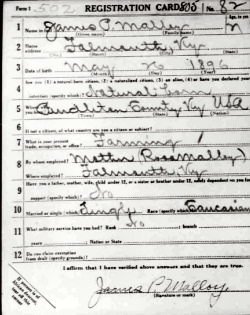 Form 1 502 REGISTRATION CARD No. 82
1 Name in full James P. Malloy Age in yrs.
(Given name) (Family name)
2 Home address Falmouth, Ky.
3 Date of birth May 26 1896
(Month) (Day) (Year)
4 Are you (1) a natural-born citizen, (2) a naturalized citizen, (3) an alien, (4) or have you declared your intention (specify which)? Natural born
5 Where were you born? Pendleton County, Ky USA
6 If not a citizen, of what country are you a citizen or subject?
7 What is your present trade, occupation, or office? Farming
8 By whom employed? Mother (Rosa Malloy)
Where employed? Falmouth, Ky.
9 Have you a father, mother, wife, child under 12, or a sister or brother under 12, solely dependent on you for
support (specify which)? No
10 Married or single (which)? Single Race (specify which)? Caucasian
11 What military service have you had? Rank No ; branch
years Nation or State
12 Do you claim exemption from draft (specify grounds)?
I affirm that I have verified above answers and that they are true.
James P. Malloy
(Signature or mark)